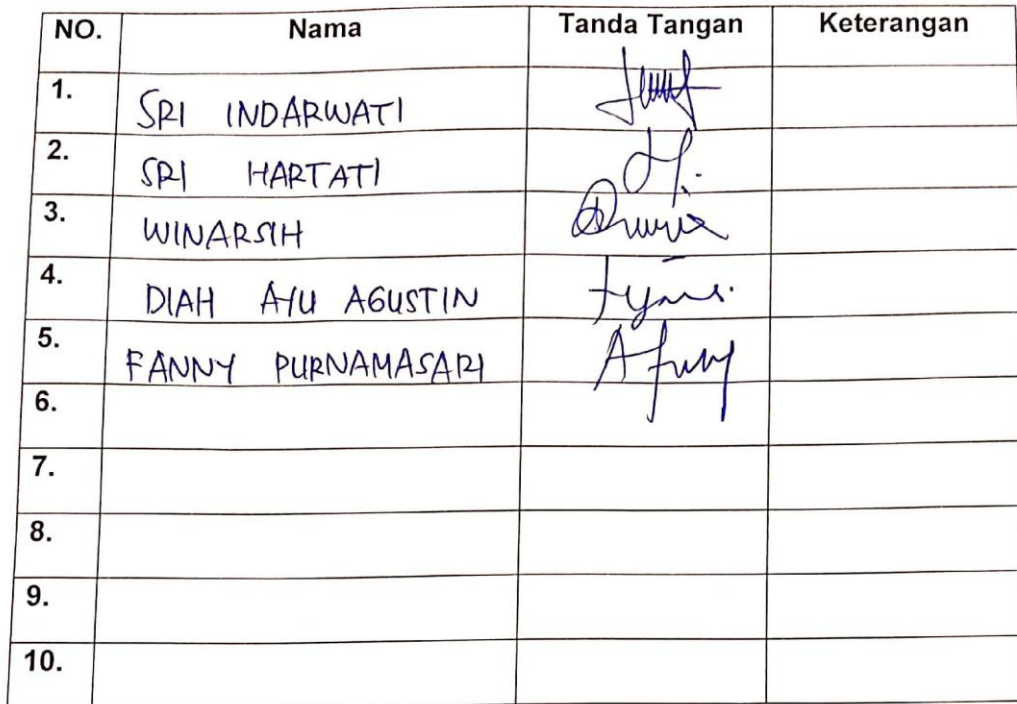 NO. Nama Tanda Tangan Keterangan
1. SRI INDARWATI
2. SRI HARTATI
3. WINARSIH
4. DIAH AYU AGUSTIN
5. FANNY PURNAMASARI
6.
7.
8.
9.
10.